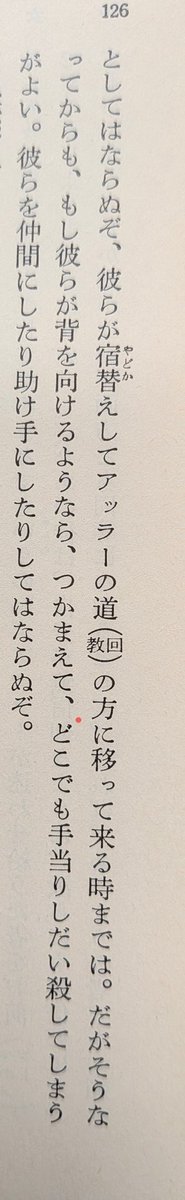 126
としてはならぬぞ、彼らが宿替えしてアッラーの道(回教)の方に移って来る時までは。だがそうな
やどか
ってからも、もし彼らが背を向けるようなら、つかまえて、どこでも手当りしだい殺してしまう
がよい。彼らを仲間にしたり助け手にしたりしてはならぬぞ。